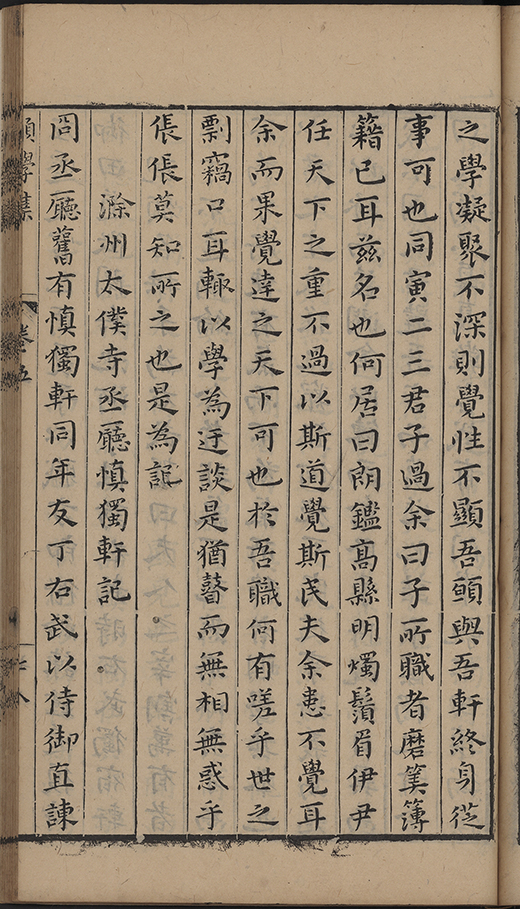 之學凝聚不深則覺性不顯吾願與吾軒終身從
事可也同寅二三君子過余曰子所職者磨筭簿
籍已耳兹名也何居曰朗鑑高縣明燭鬚眉伊尹
任天下之重不過以斯道覺斯民夫余患不覺耳
余而果覺達之天下可也於吾職何有嗟乎世之
剽竊口耳輒以學為迂談是猶瞽而無相無惑乎
倀倀莫知所之也是為記
滁州太僕寺丞廳慎獨軒記
冏丞廳舊有慎獨軒同年友丁右武以侍御直諫
願學集
卷五
十八